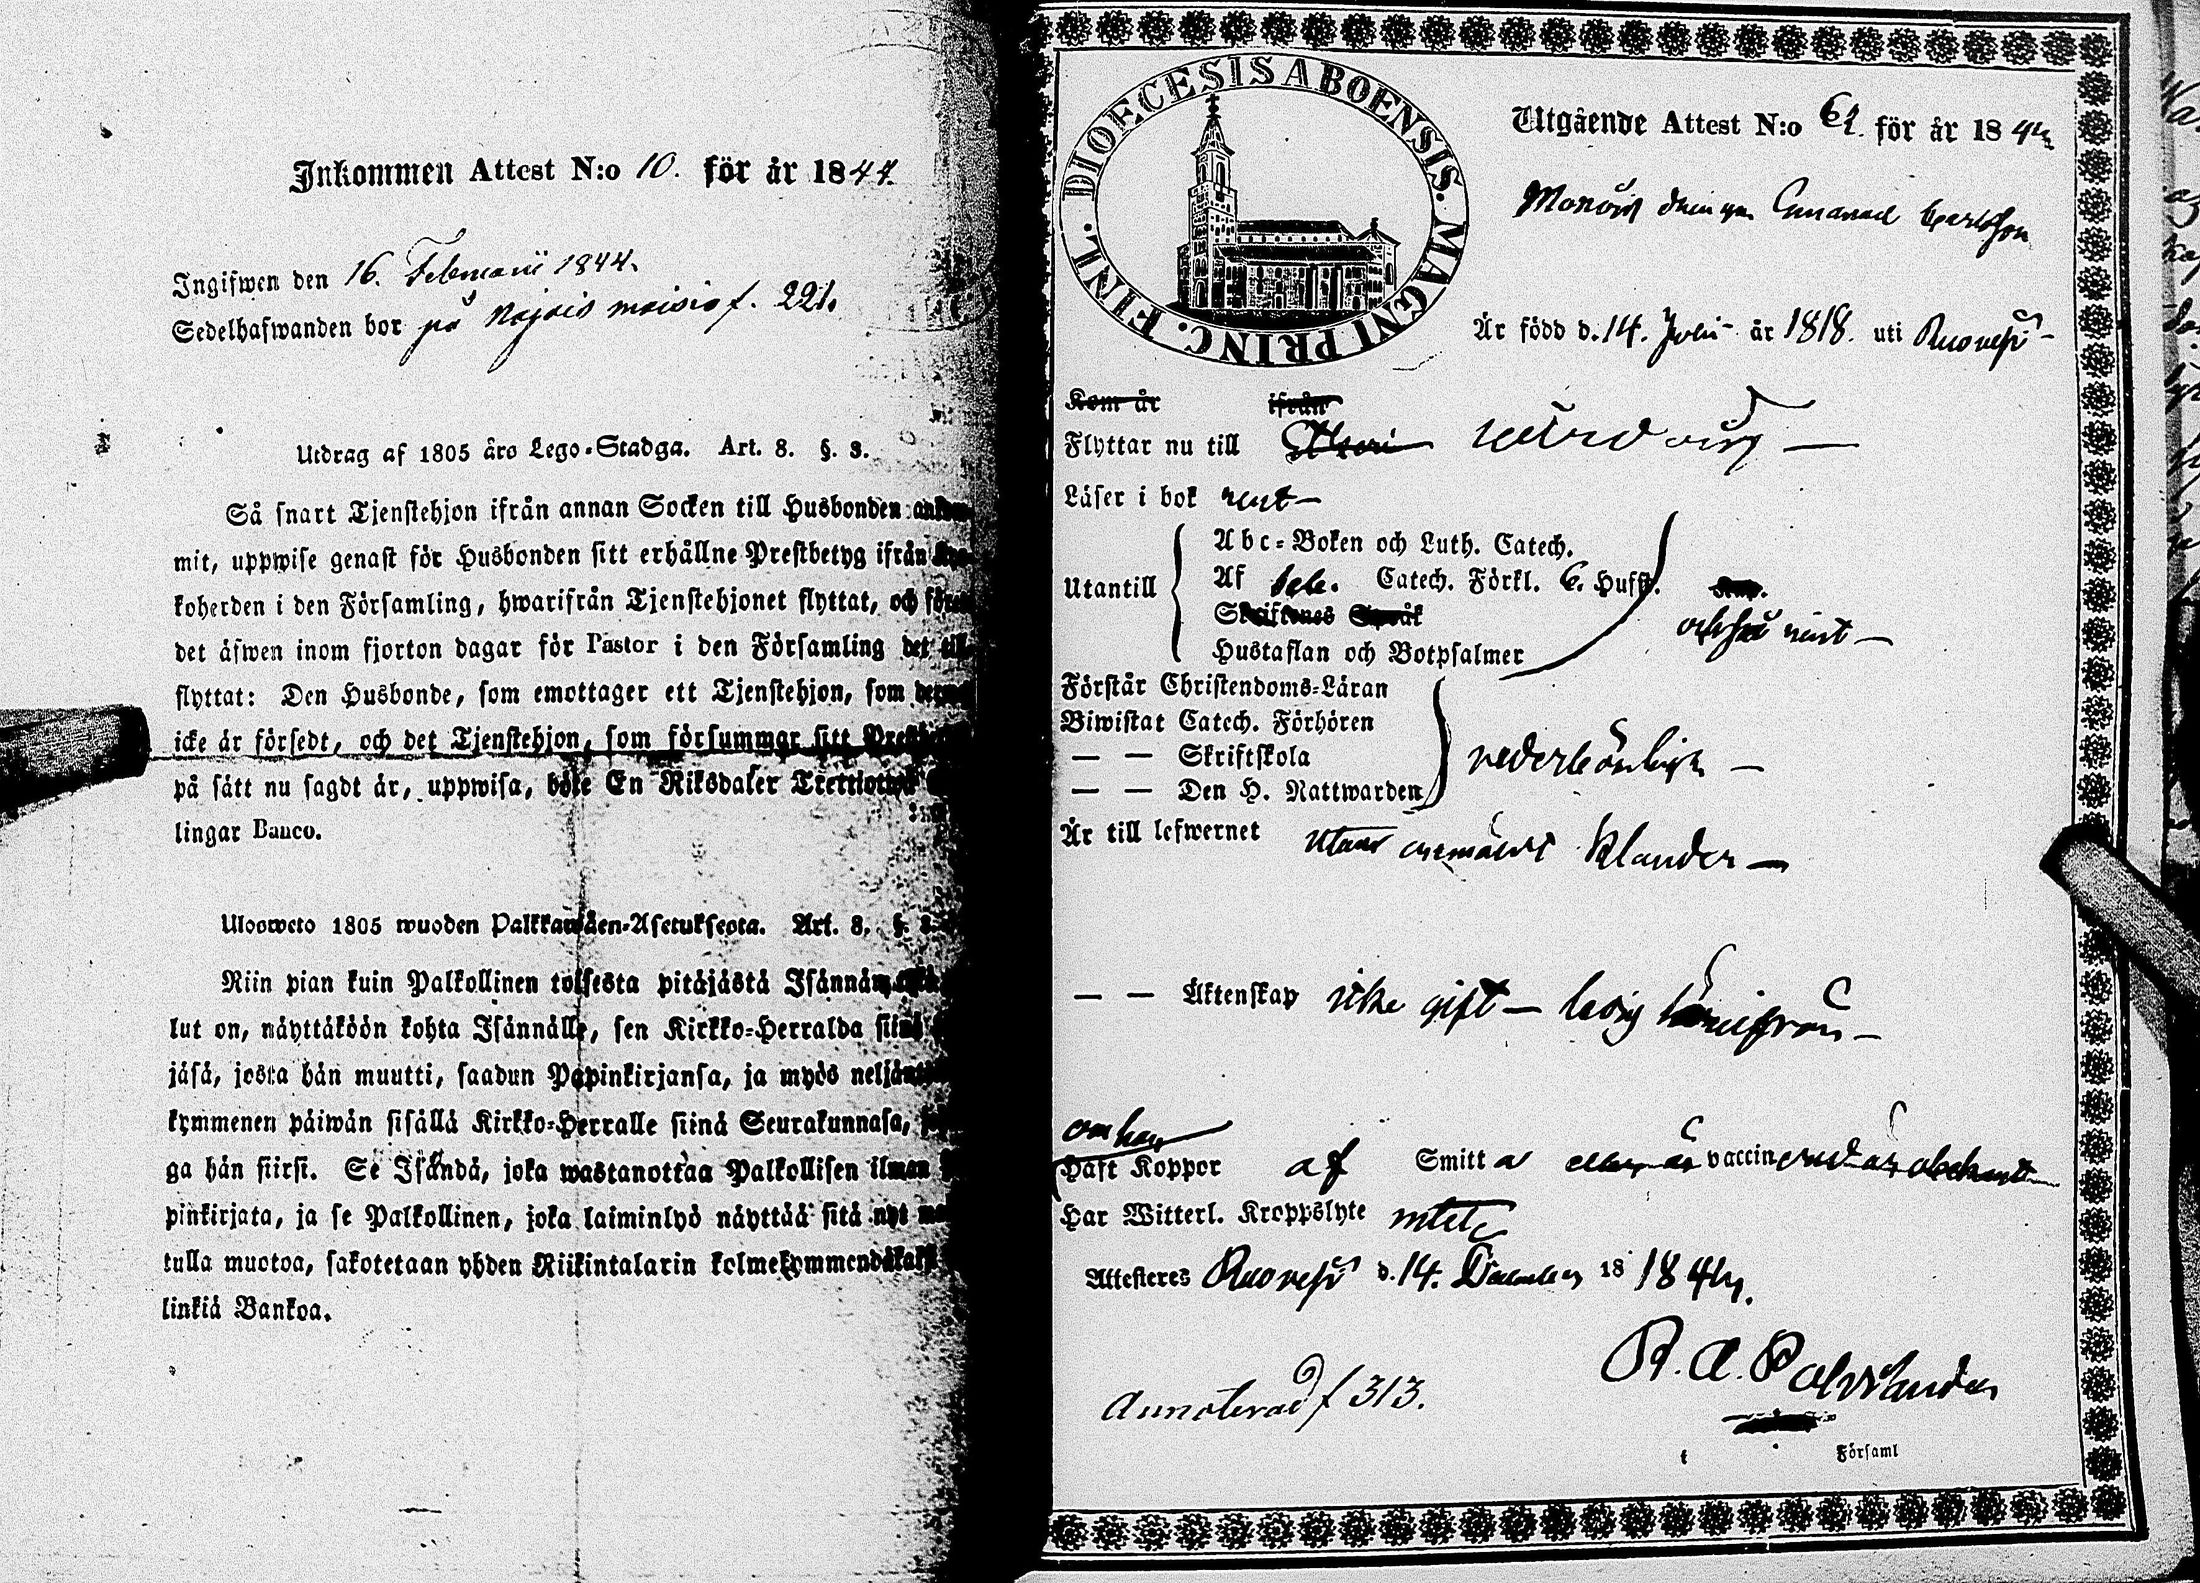 Inkommen Attest N:o 10. för år 1844.
Ingifwen den 16. Februarii 1844.
Sedelhafwanden bor på f. 221.
Utdrag af 1805 års Lego-Stadga. Art. 8. §. 3.
Så snart Tjenstehjon ifrån annan Socken till Husbonden
mit, uppwise genast för Husbonden sitt erhållne Prestbetyg ifrån
koherden i den Församling, hwarifrån Tjenstehjonet flyttat, och
det äfwen inom fjorton dagar för Pastor i den Församling det
flyttat: Den Husbonde, som emottager ett Tjenstehjon, som
icke är försedt, och det Tjenstehjon, som försummar sitt
på sätt nu sagdt är, uppwisa, böte En Riksdaler
lingar Banco.
Ulosweto 1805 wuoden Palkkawäen-Asetuksesta. Art. 8. §. 3.
Niin pian kuin Palkollinen toisesta pitäjästä Isännän
lut on, näyttäköön kohta Isännälle, sen Kirkko-Herralda
jäsä, josta hän muutti, saadun Papinkirjansa, ja myös
kymmenen päiwän sisällä Kirkko-Herralle siinä Seurakunnasa,
ga hän siirsi. Se Isändä, joka wastanottaa Palkollisen ilman
pinkirjata, ja se Palkollinen, joka laiminlyö näyttää sitä nyt
tulla muotoa, sakotetaan yhden Riikintalarin
linkiä Bankoa.
DIOECESIS ABOENSIS. MAGNI PRINC. FINL.
Utgående Attest N:o 62. för år 1844
Är född d. 14. Julii år 1818. uti Ruovesi
Kom år ifrån
Flyttar nu till
Läser i bok rent
Abc-Boken och Luth. Catech.
Utantill Af Catech. Förkl. 6. Huffst.
Skriftenes Språk
Hustaflan och Botpsalmer
också rent
Förstår Christendoms-Läran
Biwistat Catech. Förhören
— — Skriftskola
— — Den H. Nattwarden
vederbörligen
Är till lefwernet utan anmärkt klander
— — Äktenskap icke gift — ledig härifrån
om han
Haft Koppor af Smitta eller är vaccinerad är obekant
Har Witterl. Kroppslyte intet
Attesteres Ruovesi d. 14. December 18 1844.
Annoterad f 313.
Församl